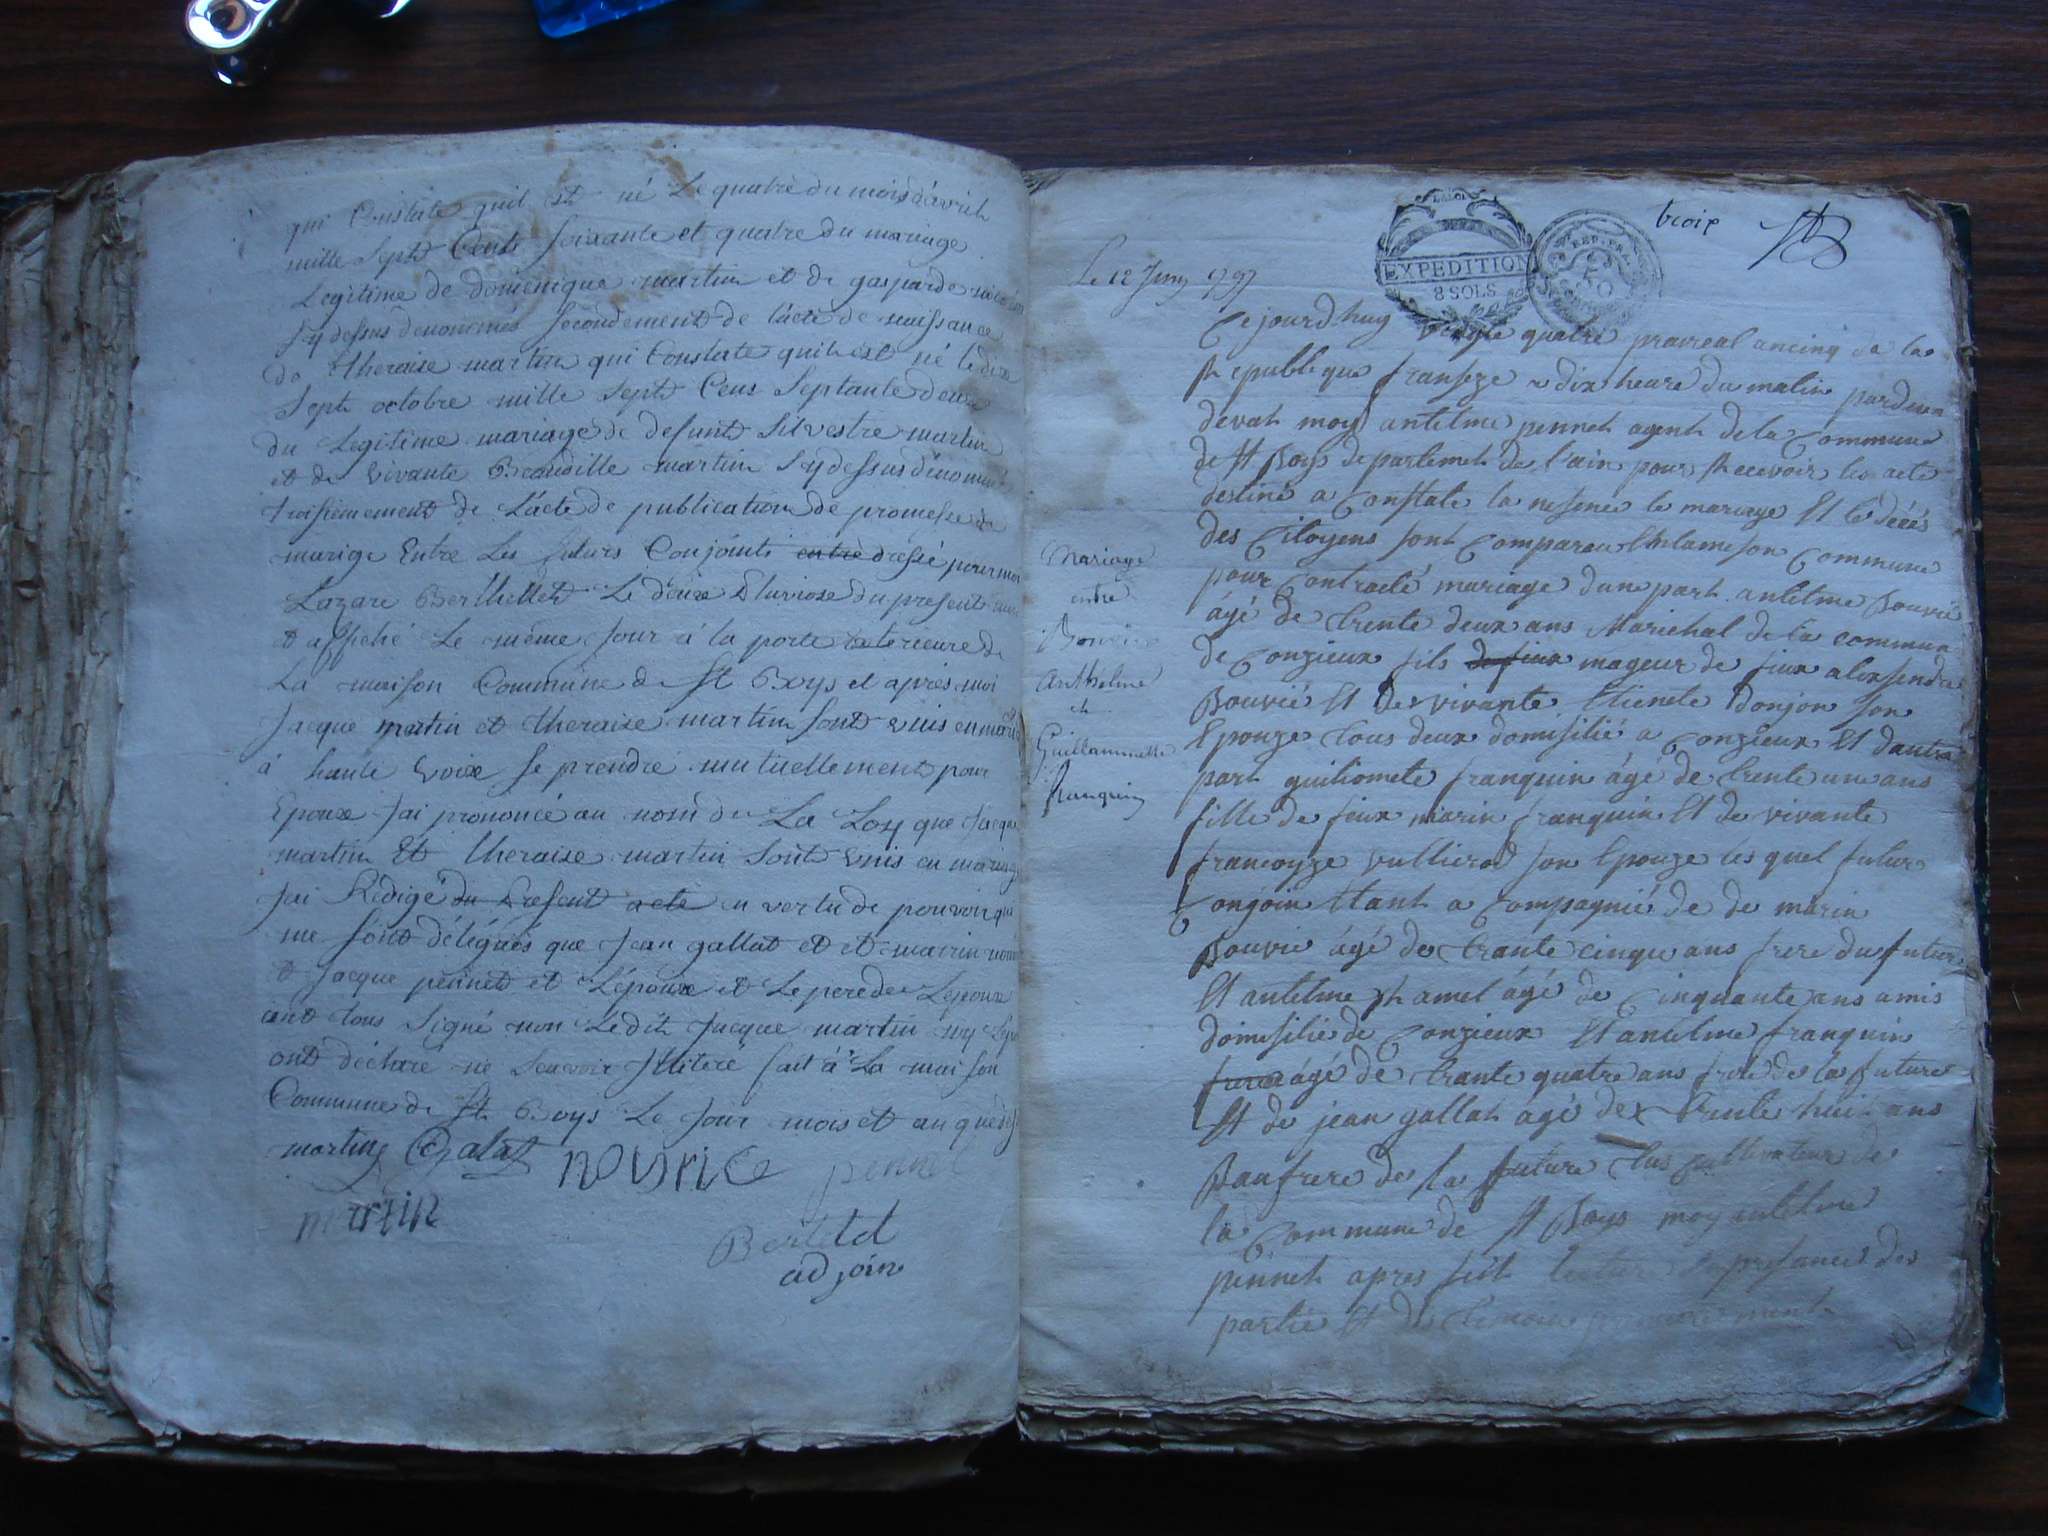 qui Constate quil est né Le quatre du mois d'avril
mille Sept Cents soixante et quatre du mariage
Legitime de domenique martin et de gasparde
sy dessus denommés secondement de l'acte de naissance
de theraise martin qui Constate quil est né le dix
Sept octobre mille Sept Cens Septante deux
du Legitime mariage de defunt silvestre martin
et de vivante martin sy dessus dénommé
troisiemement de L'acte de publication de promesse de
marige Entre Les futurs Conjoints entre dressé par moi
Lazare Berthellet Le deux Pluviose du present mois
et affiché Le même Jour à la porte exterieure de
La maison Commune de St Boys et après moi
Jacque matin et theraise martin sont unis en
à haute voix se prendre mutuellement pour
Epoux Jai prononcé au nom de La Loy que Jacque
martin Et theraise martin sont unis en mariage
Jai Rédigé du Present acte en vertu de pouvoir qui
me sont délégués que Jean gallat et et marin
et Jacque pennet et L'epoux et Le pere de Lepoux
ont tous signé non Ledit Jacque martin ny
ont déclaré ne Scavoir fait à La maison
Commune de St Boys Le Jour mois et an que
martin Galat nourice pennet
martin
Bertelet
adjoin
troix
LA LOI
EXPEDITION
8 SOLS
REP. FRA.
Le 12 Juin 1797
Ce jourdhuy vingte quatre prereal an cinq de la
Republique franseze a dix heure du matin par de
devah moy antelme penneh agenh de la Commune
de St Boys departemeh de l'ain pour Recevoir les acte
destiné a Constate la nesence le mariage Et le décés
des Citoyens sont Comparu Commune
pour Contracté mariage dune parh antelme Bouvié
âgé de trente deux ans Marichal de la commune
de Conzieux fils de feux mageur de feux alexsendre
Bouvié Et de vivante Etienete Donjon son
Epouze tous deux domisilié a Conzieux Et dautre
parh guiliomete franquin âgé de trente une ans
fille de feux marin franquin Et de vivante
francoyze vullierod son Epouze les quel futur
Conjoin Etanh a Compagnié de de marin
Bouvié âgé de trante cinque ans frere du futur
Et antelme hamel âgé de Cinquante ans amis
domisilié de Conzieux Et antelme franquin
frere âgé de trante quatre ans frere de la future
Et de jean gallah agé de trente huit ans
Baufrere de la future tus Cultivateur de
la Commune de St Boys moy antelme
penneh apres feit presance des
partie Et des temoin premierementh
Mariage
entre
Bouvier
Anthelme
et
Guillaumette
franquin